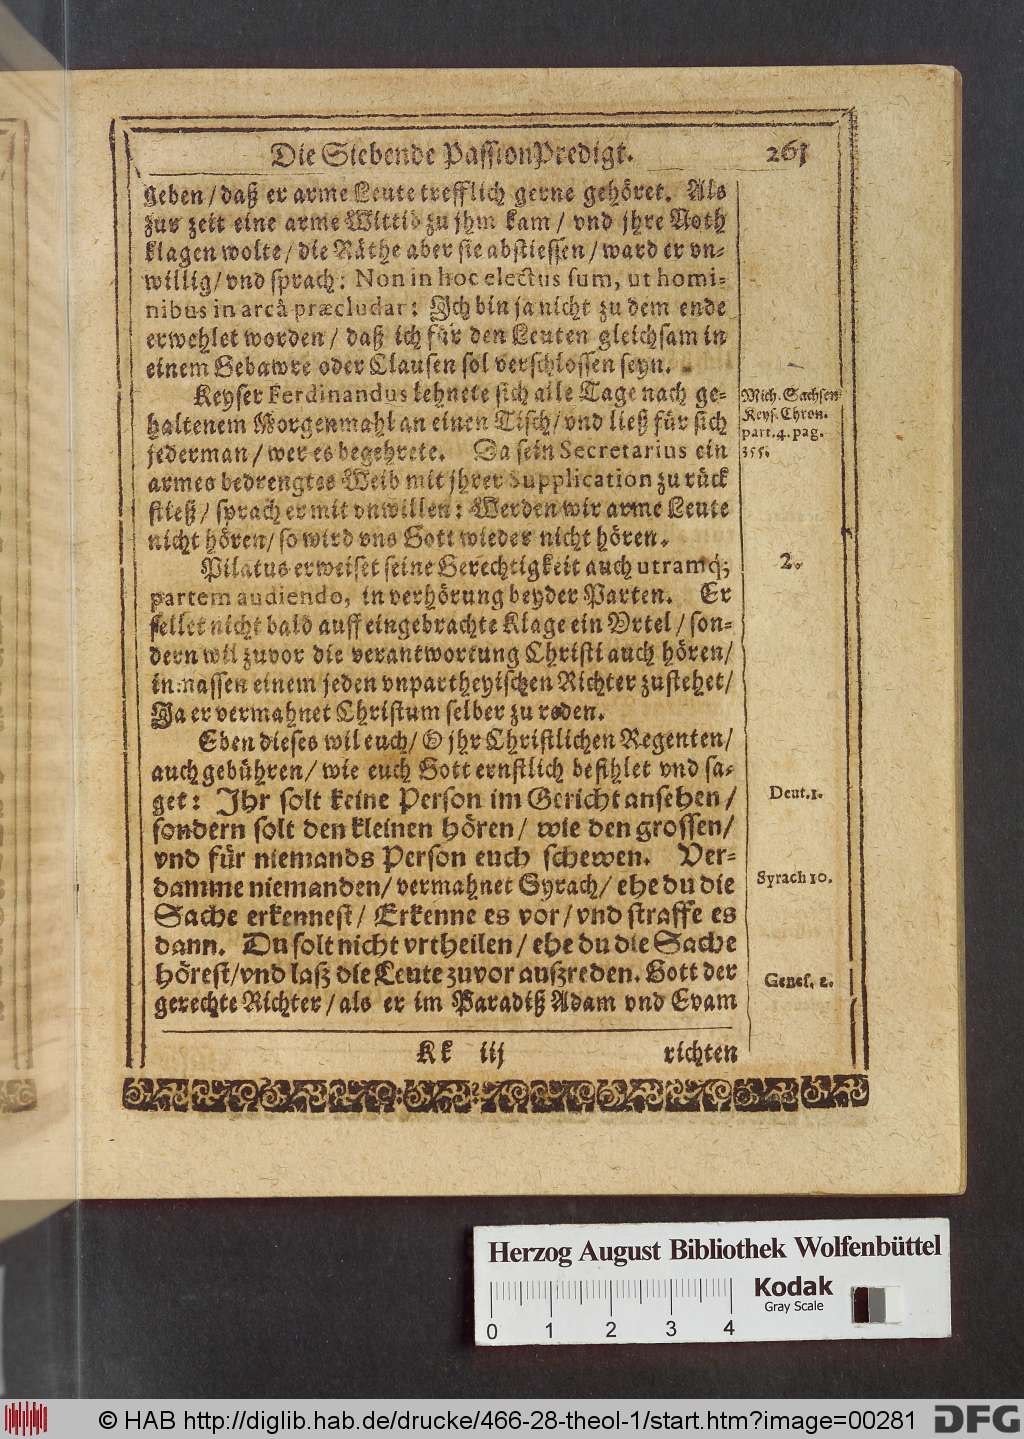 Die Siebende PassionPredigt. 261
geben / daß er arme Leute trefflich gerne gehöret. Als
zur zeit eine arme Wittib zu jhm kam / vnd jhre Noth
klagen wolte / die Räthe aber sie abstiessen / ward er vn-
willig / vnd sprach: Non in hoc electus sum, ut homi-
nibus in arcâ præcludar: Ich bin ja nicht zu dem ende
erwehlet worden / daß ich für den Leuten gleichsam in
einem Gebawre oder Clausen sol verschlossen seyn.
Keyser Ferdinandus lehnete sich alle Tage nach ge-
haltenem Morgenmahl an einen Tisch / vnd ließ für sich
jederman / wer es begehrete. Da sein Secretarius ein
armes bedrengtes Weib mit jhrer Supplication zu rück
stieß / sprach er mit vnwillen: Werden wir arme Leute
nicht hören / so wird vns Gott wieder nicht hören.
Mich. Sachsen
Keys. Chron.
part. 4. pag.
355.
Pilatus erweiset seine Gerechtigkeit auch utramq;
partem audiendo, in verhörung beyder Parten. Er
fellet nicht bald auff eingebrachte Klage ein Vrtel / son-
dern wil zuvor die verantwortung Christi auch hören /
inmassen einem jeden vnpartheyischen Richter zustehet /
Ja er vermahnet Christum selber zu reden.
2.
Eben dieses wil euch / O jhr Christlichen Regenten /
auch gebühren / wie euch Gott ernstlich befihlet vnd sa-
get: Ihr solt keine Person im Gericht ansehen /
sondern solt den kleinen hören / wie den grossen /
vnd für niemands Person euch schewen. Ver-
damme niemanden / vermahnet Syrach / ehe du die
Sache erkennest / Erkenne es vor / vnd straffe es
dann. Du solt nicht vrtheilen / ehe du die Sache
hörest / vnd laß die Leute zuvor außreden. Gott der
gerechte Richter / als er im Paradiß Adam vnd Evam
Deut. 1.
Syrach 10.
Genes. 2.
Kk iij richten
Herzog August Bibliothek Wolfenbüttel
Kodak
Gray Scale
0 1 2 3 4
© HAB http://diglib.hab.de/drucke/466-28-theol-1/start.htm?image=00281 DFG